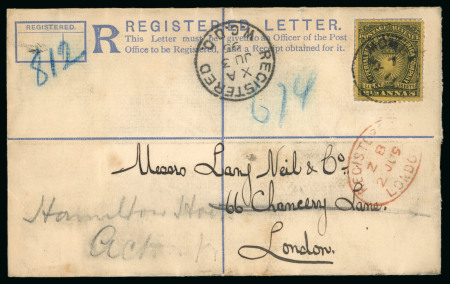 REGISTERED.
812
R
REGISTERED LETTER.
This Letter must be given to an Officer of the Post
Office to be Registered, and a Receipt obtained for it.
REGISTERED
X A
JU
674
ANNAS
REGISTERED
Z 8
2 JU
LONDO
Messrs Lang Neil & Co.
66 Chancery Lane.
London.
Hamilton